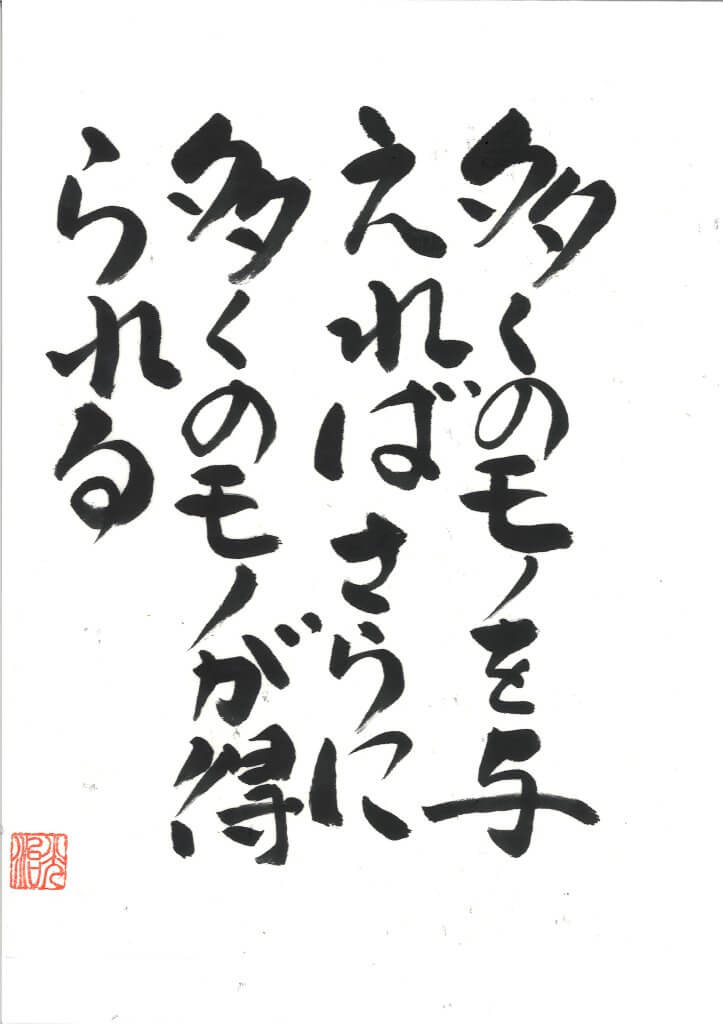 多くのモノを与
えればさらに
多くのモノが得
られる